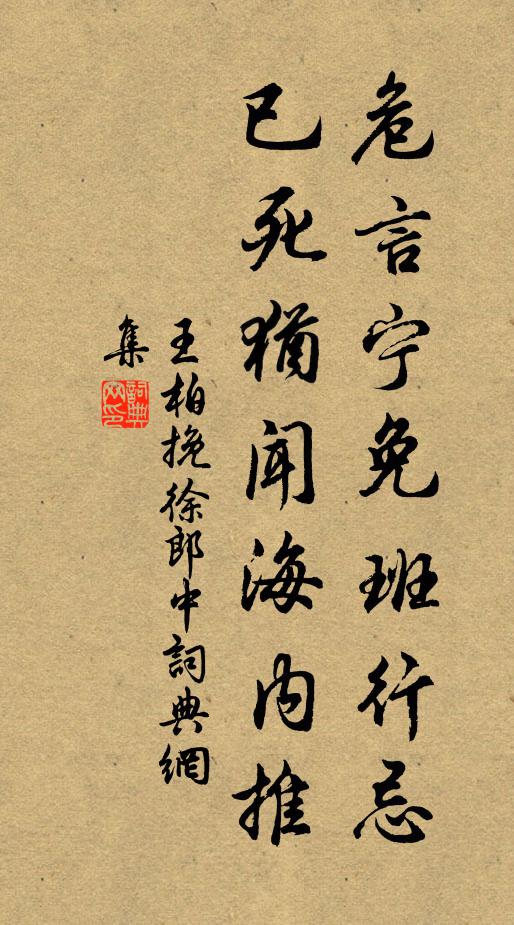 危言宁免班行忌
已死犹闻海内推
王柏挽徐郎中詞典網
集
詞典网印